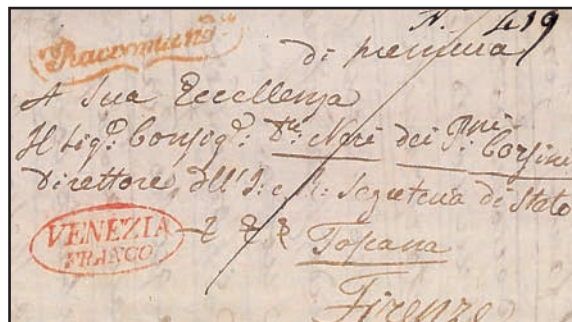 N. 419
Raccomandª
di premura
A Sua Eccellenza
Il Sigr. Consigr. Dn. Neri dei Pni. Corsini
Direttore dell' I: e R: Segreteria di Stato
VENEZIA
FRANCO
Toscana
Firenze